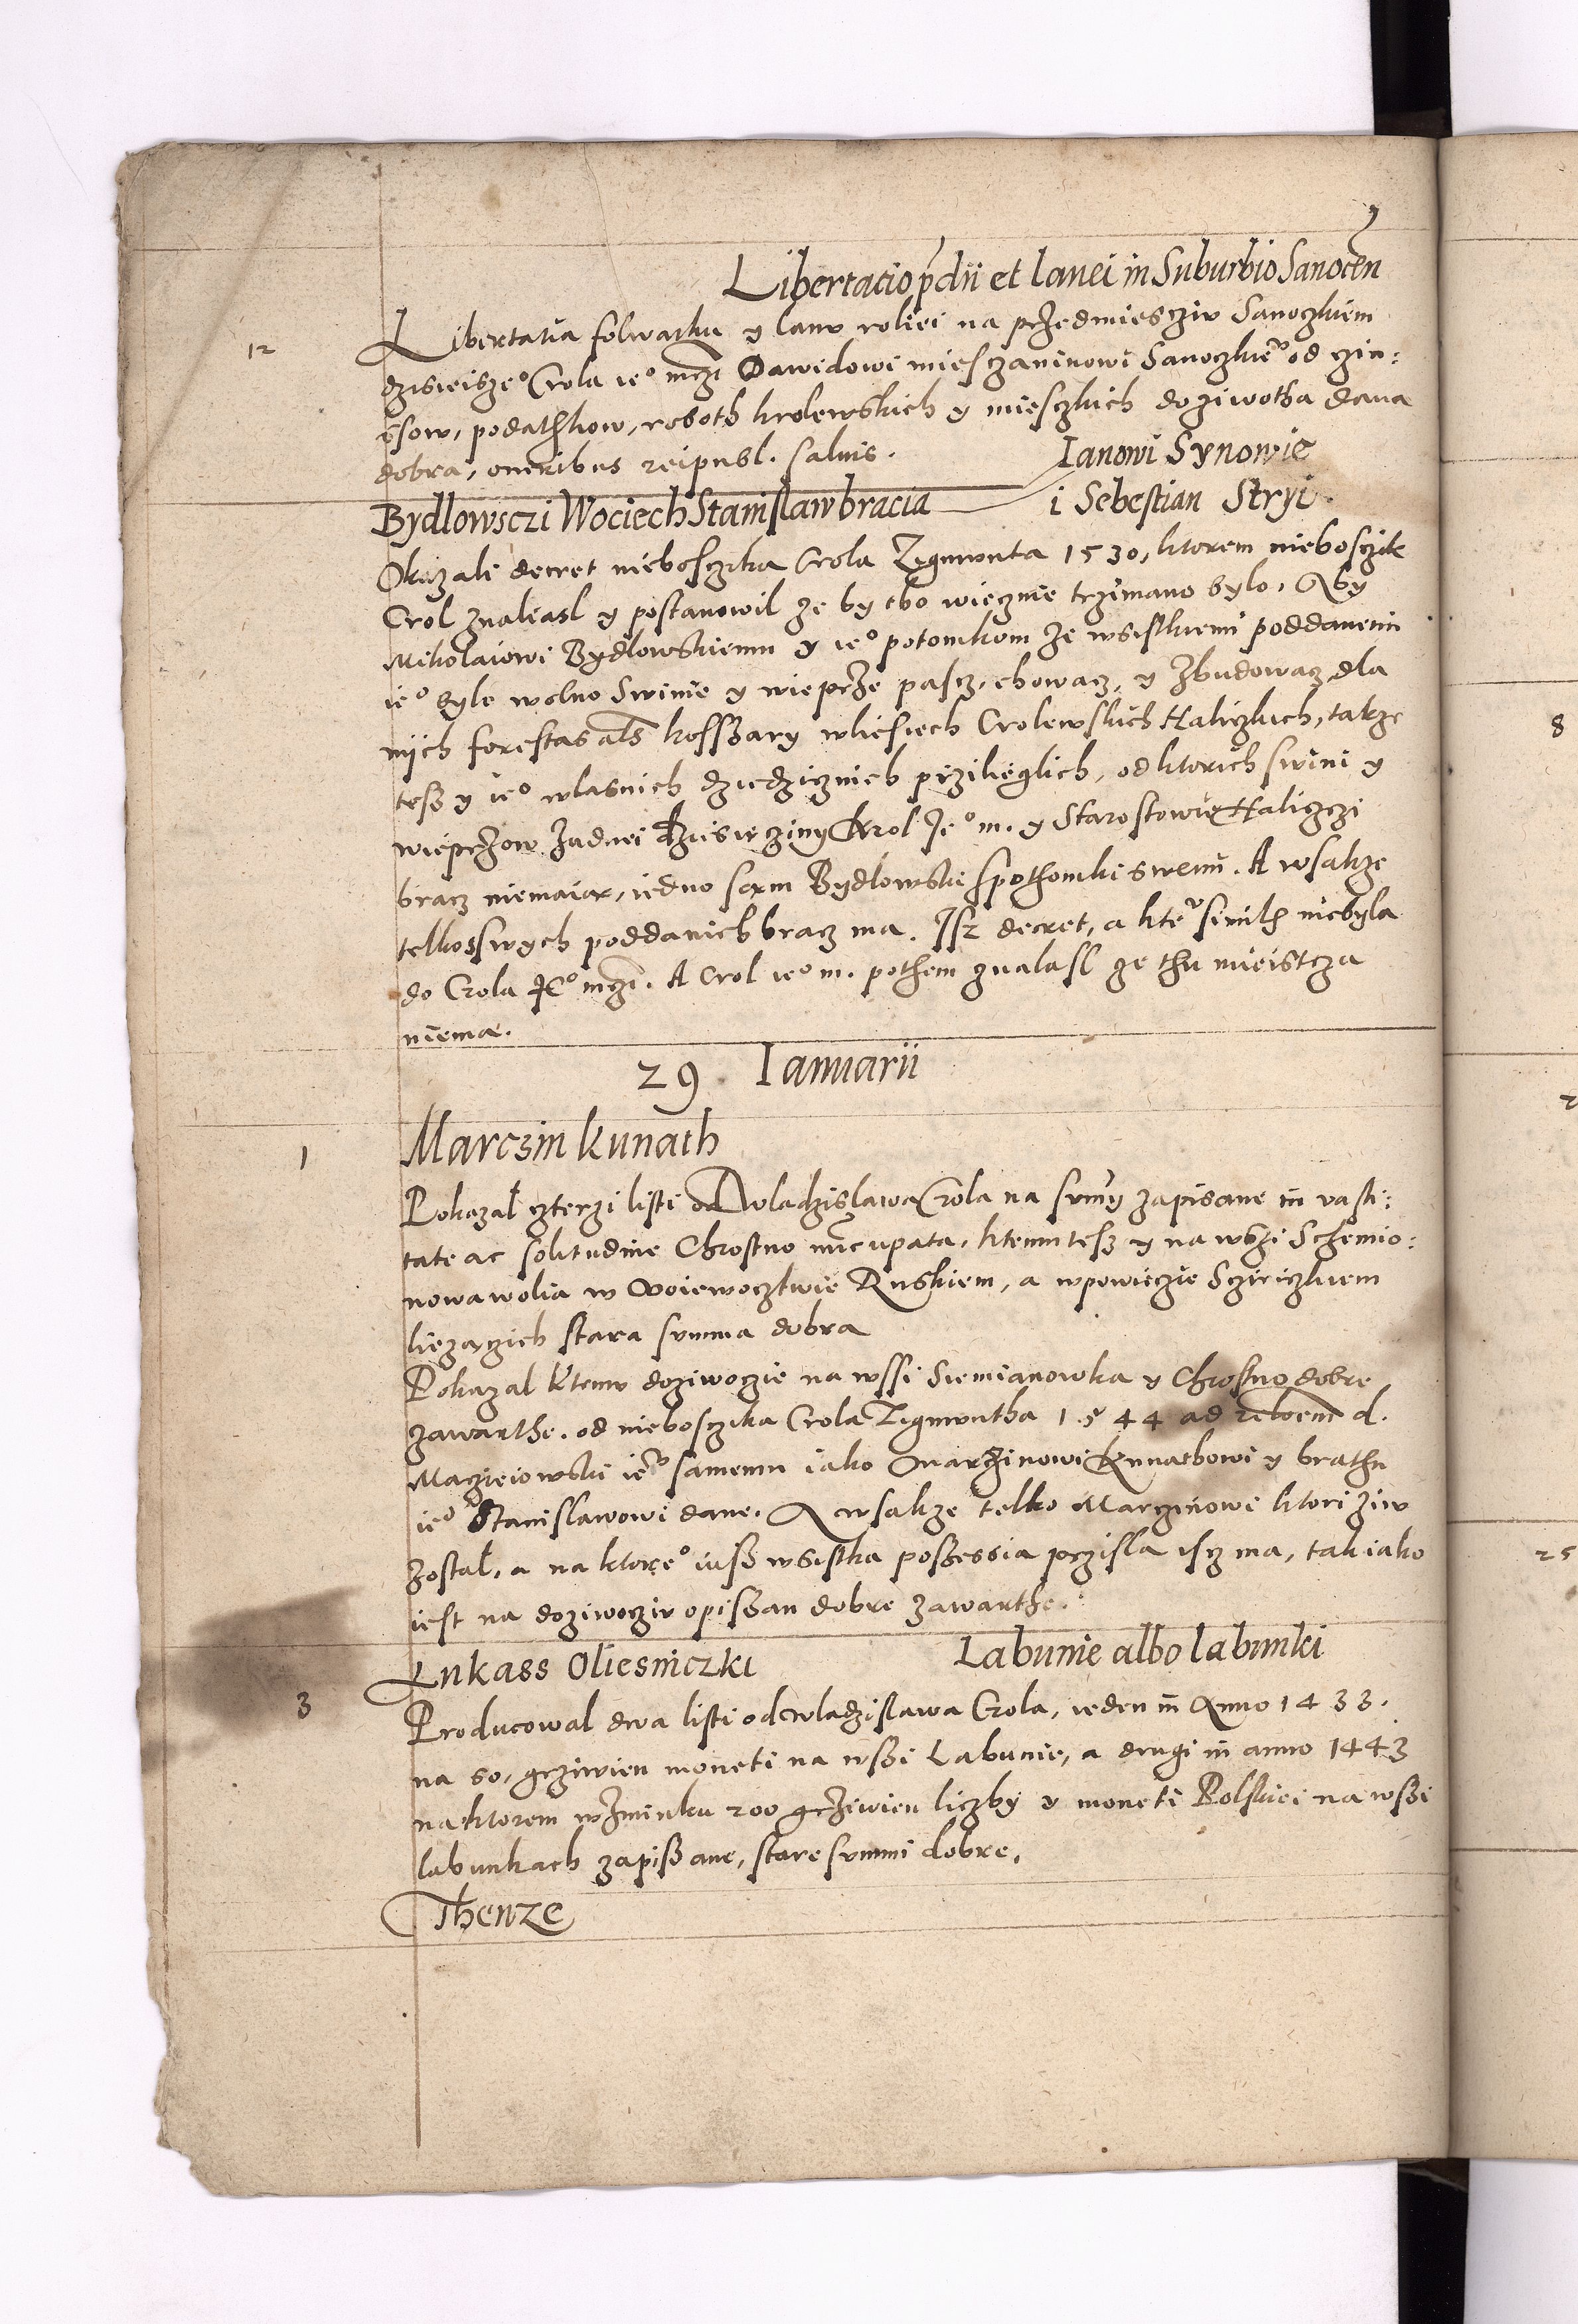 Libertacio p̄dii et lanei in Suburbio Sanocen̄
12
Libertatia folwarku y lanu roliei na przedmiesciu Sanoczkiem
dzisieisze° Crola ie° mczi Dawidowi miesczaninowi Sanoczkie° od czin:
ssow, podathkow, roboth krolewskich y miesczkich do ziwotha dana
dobra, oneribus reipubl. salvis.
Ianowi Synowie
Bydlowsczi Wociech Stanislaw bracia
i Sebestian Stryi
Okazali decret nieboszcika Crola Zigmunta 1530, ktorem nieboszcik
Crol znaliasl y postanowil ze by tho wiecznie trzimano bylo, Aby
Mikolaiowi Bydlowskiemu y ie° potomkom ze wsistkiemi poddanemi
ie° byle wolno swinie y wieprze pascz, chowacz, y zbudowacz dla
nijch forestas als kosszary w liesiech Crolewskich Haliczkich, takze
tesz y ie° wlasnich dziedzicznich przilieglich, od ktorich swini y
wieprzow zadnei dziesiecziny Krol Ie° m. y Starostowie Haliczczi
bracz niemaiar, iedno sam Bydlowski spothomki swemi. A wsakze
telko s swych poddanich bracz ma. Isz decret, a kte° simile niebyla
do Crola Je° mczi. A Crol ie° m. pothem znalasl ze thu mieistcza
niema.
29. Ianuarii
1
Marczin Kunath
Pokazał czterzi listi od Wladzislawa Crola na summy zapisane in vasti:
tate ac solitudine Chrostno nuncupata, ktemu tesz y na wszi Schemio:
nowa wolia w Woiewocztwie Ruskiem, a w powieczie Sczirziczkiem
liezaczich stara summa dobra
Pokazal k temu doziwoczie na wssi Siemianowka y Chrostno dobre
zawarthe. od nieboszcika Crola Zigmuntha 1544 ad reloem d.
Macziejowski ie° samemu iako Marczinowi Kunathowi y brathu
ie° Stanislawowi dane. A wsakze telko Marczinowi ktori ziw
został, a na ktore° iusz wsistka possessia przisla iscz ma, tak iako
iest na doziwocziu opissan dobre zawarthe.
Lukass Oliesniczki
Labunie albo labunki
3
Producowal dwa listi od Wladzislawa Crola, ieden in Anno 1433.
na 50, grziwien moneti na wszi Labunie, a drugi in anno 1443
na ktorem wzminku 200 grziwien liczby y moneti Polskiei na wszi
labunkach zapissane, stare summi dobre.
Thenze
8
25